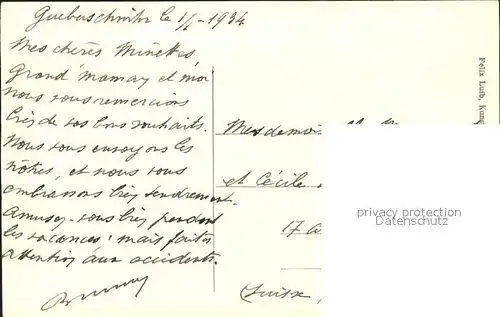 le 1/1 - 1934
Mes chères Minettes
Grand'maman et moi
nous vous remercions
très de vos bons souhaits.
Nous vous envoyons les
nôtres, et nous vous
embrassons très tendrement.
Amusez-vous très pendant
les vacances; mais faites
attention aux accidents.
et Cécile
17
Suisse
Felix Luib,
privacy protection
www.ansichtskarten-center.de